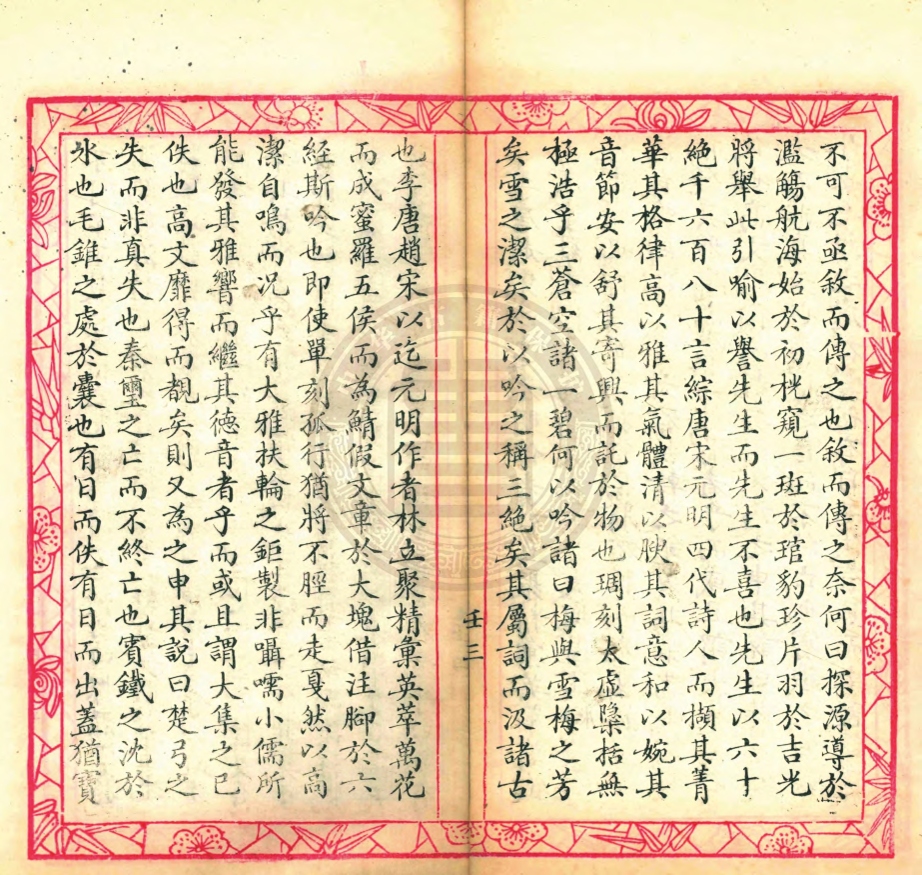 不可不亟敘而傳之也敘而傳之奈何曰探源導於
濫觴航海始於初桄窺一斑於琯豹珍片羽於吉光
將舉此引喻以譽先生而先生不喜也先生以六十
絶千六百八十言綜唐宋元明四代詩人而擷其菁
華其格律高以雅其氣體清以腴其詞意和以婉其
音節安以舒其寄興而託於物也琱刻太虛檃括無
極浩乎三蒼空諸一碧何以吟諸曰梅與雪梅之芳
矣雪之潔矣於以吟之稱三絶矣其屬詞而汲諸古
壬三
也李唐趙宋以迄元明作者林立聚精彙英萃萬花
而成蜜羅五侯而為鯖假文章於大塊借注腳於六
經斯吟也即使單刻孤行猶將不脛而走戛然以高
潔自鳴而况乎有大雅扶輪之鉅製非囁嚅小儒所
能發其雅響而繼其德音者乎而或且謂大集之已
佚也高文靡得而覩矣則又為之申其説曰楚弓之
失而非真失也秦璽之亡而不終亡也賓鐵之沈於
氷也毛錐之處於囊也有日而佚有日而出蓋猶寶